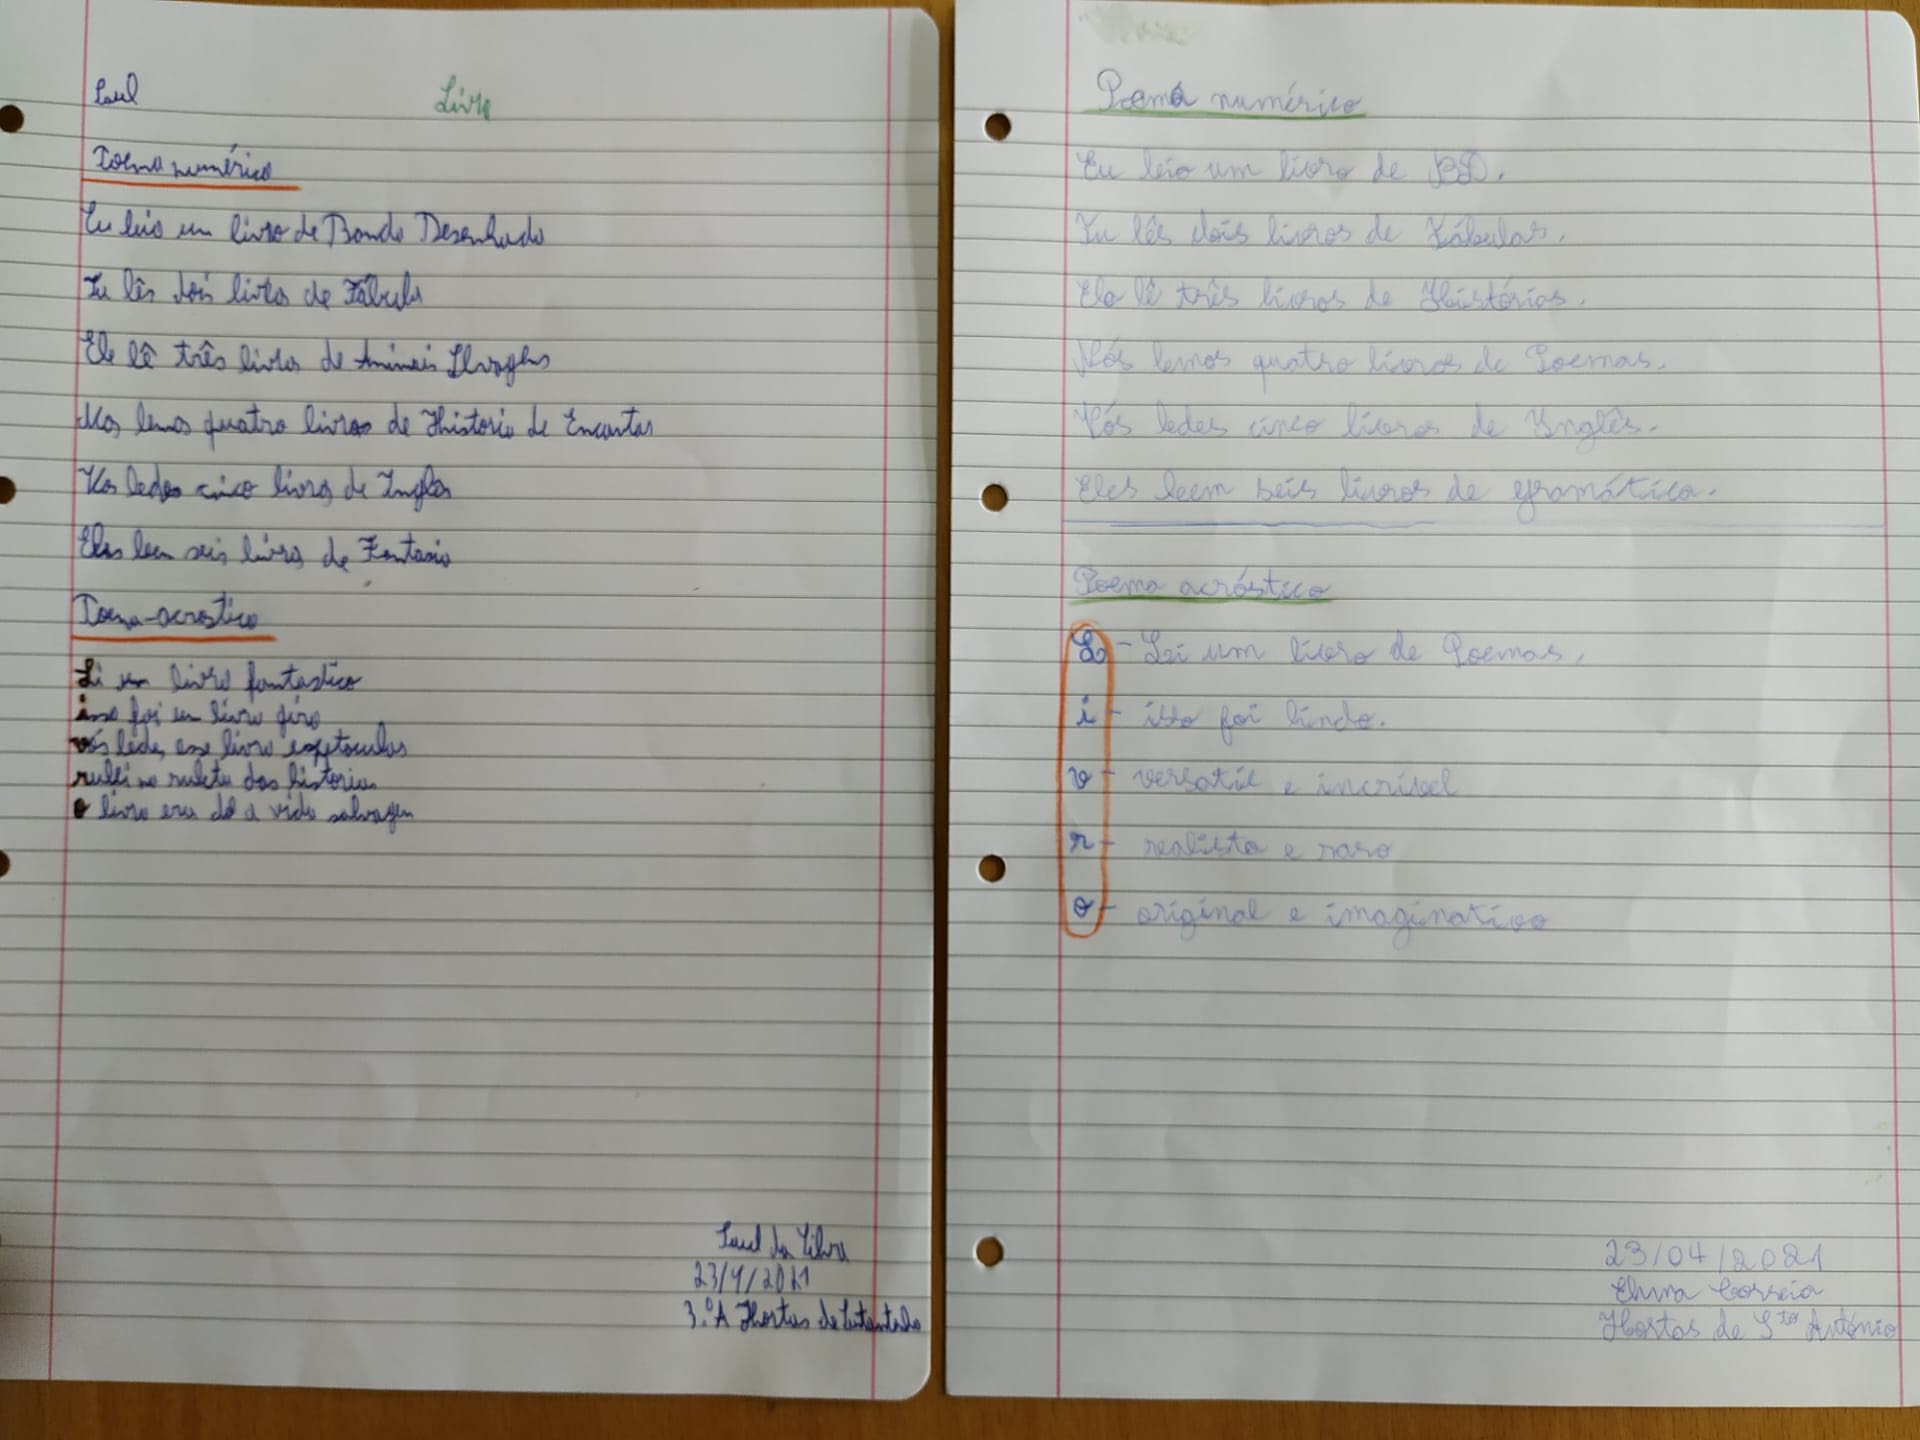 Saul
Livro
Poema numérico
Eu leio um livro de Banda Desenhada
Tu lês dois livros de Fábula
Ele lê três livros de Animais
Nos lemos quatro livros de Historia de Encantar
Vos ledes cinco livros de Ingles
Eles leem seis livros de Fantasia
Poema-acrostico
Li um livro fantastico
isso foi um livro giro
vós ledes esse livro
na das historias
o livro era da vida salvagem
Saul da Silva
23/4/2021
3.ºA Hortas de
Poema numérico
Eu leio um livro de BD.
Tu lês dois livros de Fábulas.
Ela lê três livros de Histórias.
Nós lemos quatro livros de Poemas.
Vós ledes cinco livros de Inglês.
Eles leem seis livros de gramática.
Poema acróstico
L - Li um livro de Poemas.
i - isto foi lindo.
v - versatil e incrivel
r - realista e raro
o - original e imaginativo
23/04/2021
Correia
Hortas de Sto António